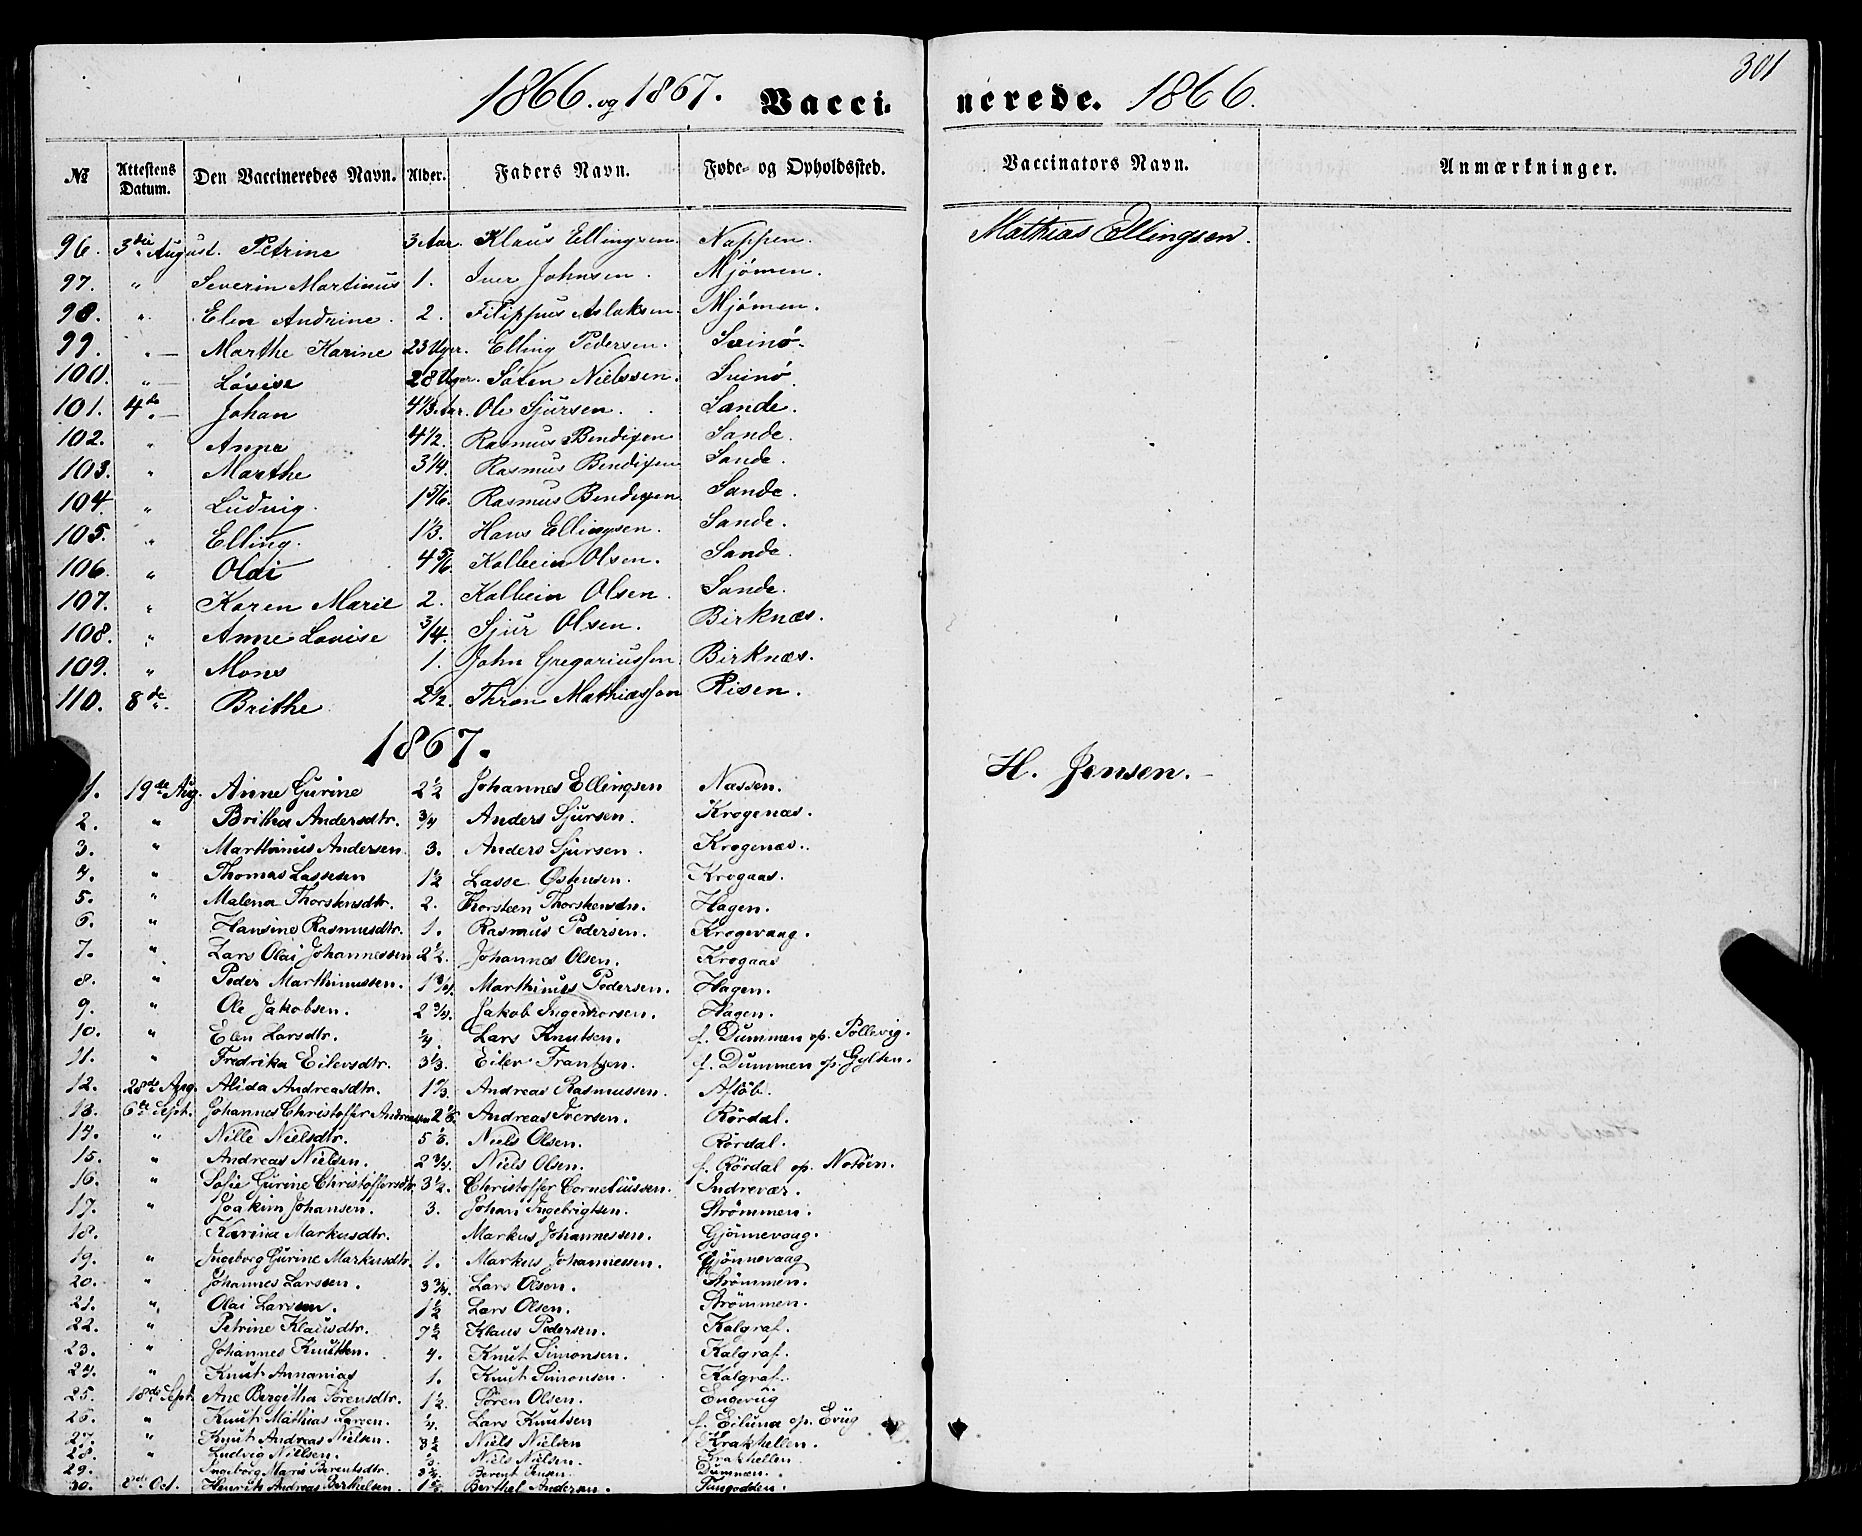 301
1866. og 1867. Vacci- nerede. 1866.
№ Attestens Datum. Den Vaccineredes Navn. Alder. Faders Navn. Føde- og Opholdssted. Vaccinators Navn. Anmærkninger.
96. 3die August. Petrine 3 Aar. Klaus Ellingsen Nappen. Mathias Ellingsen.
97. " Severin Martinus 1. Iver Johnsen. Mjømen.
98. " Elen Andrine. 2. Filippus Aslaksen Mjømen.
99. " — Marthe Karine 23 Uger. Elling Pedersen. Svinø.
100. " — Lovise 28 Uger. Søren Nielssen. Svinø
101. 4de — Johan 4 1/3 Aar. Ole Sjursen. Sande.
102. " Anne 4 1/2. Rasmus Bendixen Sande.
103. " Marthe 3 1/4. Rasmus Bendixen Sande.
104. " Ludvig. 1 5/6. Rasmus Bendixen Sande.
105. " Elling. 1 1/3. Hans Ellingsen. Sande.
106. " Olai 4 5/6. Kolbein Olsen. Sande.
107. " Karen Marie 2. Kolbein Olsen. Sande.
108. " Anne Lovise 3/4. Sjur Olsen. Birknæs.
109. " Mons 1. John Gregoriussen Birknæs.
110. 8de " Brithe 2 1/2. Thron Mathiassen Risen.
1867.
1. 19de Aug. Anne Gurine 2 1/2 Johannes Ellingsen Nassen. H. Jensen. —
2. " Britha Andersdtr. 3/4 Anders Sjursen. Krogenæs.
3. " Marthinus Andersen 3. Anders Sjursen. Krogenæs.
4. " Thomas Lassesen 1 1/2 Lasse Østensen. Krogaas.
5. " Malena Thorstensdtr. 2. Thorsteen Hagen.
6. " Hansine Rasmusdtr. 1. Rasmus Pedersen. Krogevaag.
7. " Lars Olai Johannessen 2 1/2. Johannes Olsen. Krogaas
8. " Peder Marthinussen. 1 3/4. Marthinus Pedersen. Hagen.
9. " Ole Jakobsen. 2 3/4. Jakob Hagen.
10. " Elen Larsdtr. 1/4. Lars Knutsen. f. Dummen op. Pollevig.
11. " Fredrika Eilersdtr. 3 1/3. Eiler Frantzen. f. Dummen op. Gylten.
12. 28de Aug. Alida Andreasdtr. 1 Andreas Rasmussen.
13. 6te Sept. Johannes Christoffer Andreassen 2 Andreas Iversen. Rørdal.
14. " Nille Nielsdtr. 5 1/3. Niels Olsen. Rørdal.
15. " Andreas Nielsen. 2 3/4. Niels Olsen. f. Rørdal op. Notøen.
16. " Sofie Gurine Christoffersdtr. 3 1/2. Christoffer Corneliussen. Indrevær.
17. " Joakim Johansen. 3. Johan Ingebrigtsen. Strømmen.
18. Karina Markusdtr. Markus Johannessen. Gjønnevaag.
19. " Ingeborg Gurine Markusdtr. 1. Markus Johannessen. Gjønnevaag
20. " Johannes Larssen. 3 3/4. Lars Olsen. Strømmen.
21. " Olai Larssen. 1 1/2 Lars Olsen. Strømmen.
22. " Petrine Klausdtr. 7 1/2 Klaus Pedersen. Kalgraf.
23. " Johannes Knutsen. 4. Knut Simonsen. Kalgraf.
24. " Knut Annanias 1. Knut Simonsen. Kalgraf.
25 18de Sept. Ane Bergitha Sørensdtr. 1 1/2. Søren Olsen.
26. " Knut Mathias Larsen. 1/4. Lars Knutsen f. Eilund op.
27. " Knut Andreas Nielsen. 3 1/2 Niels Nielsen Krakhellen.
28. " Ludvig Nielsen. Niels Nielsen. Krakhellen.
29. Ingeborg Marie Berentsdtr. Berent Jensen Dummen.
30. 8de Oct. Henrik Andreas Berthelsen. Berthel Andersen.